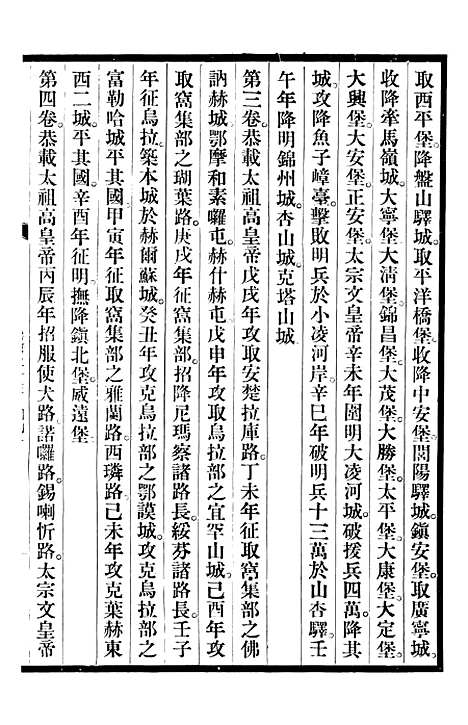 取西平堡降盤山驛城取平洋橋堡收降中安堡閭陽驛城鎮安堡取廣寧城
收降牽馬嶺城大寧堡大清堡錦昌堡大茂堡大勝堡太平堡大康堡大定堡
大興堡大安堡正安堡太宗文皇帝辛未年圍明大凌河城破援兵四萬降其
城攻降魚子嶂臺擊敗明兵於小凌河岸辛巳年破明兵十三萬於山杏驛壬
午年降明錦州城杏山城克塔山城
第三卷恭載太祖高皇帝戊戌年攻取安楚拉庫路丁未年征取窩集部之佛
訥赫城鄂摩和素囉屯赫什赫屯戊申年攻取烏拉部之宜罕山城己酉年攻
取窩集部之瑚葉路庚戌年征窩集部招降尼瑪察諸路長綏芬諸路長壬子
年征烏拉築本城於赫爾蘇城癸丑年攻克烏拉部之鄂謨城攻克烏拉部之
富勒哈城平其國甲寅年征取窩集部之雅蘭路西璘路己未年攻克葉赫東
西二城平其國辛酉年征明撫降鎮北堡威遠堡
第四卷恭載太祖高皇帝丙辰年招服使犬路諾囉路錫喇忻路太宗文皇帝